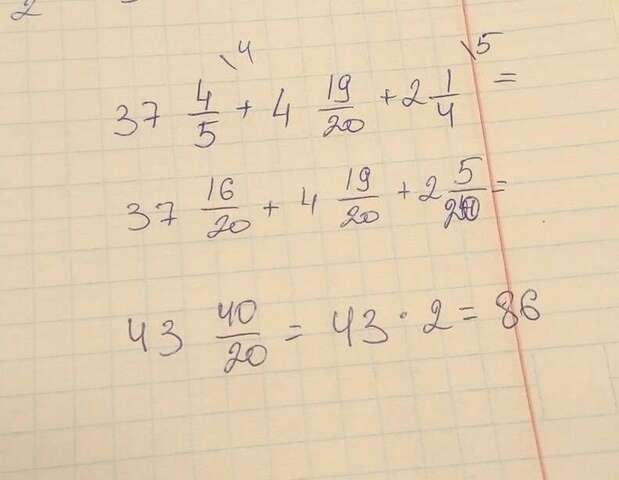 2
\4 \5
37 4/5 + 4 19/20 + 2 1/4 =
37 16/20 + 4 19/20 + 2 5/20 =
43 40/20 = 43 · 2 = 86